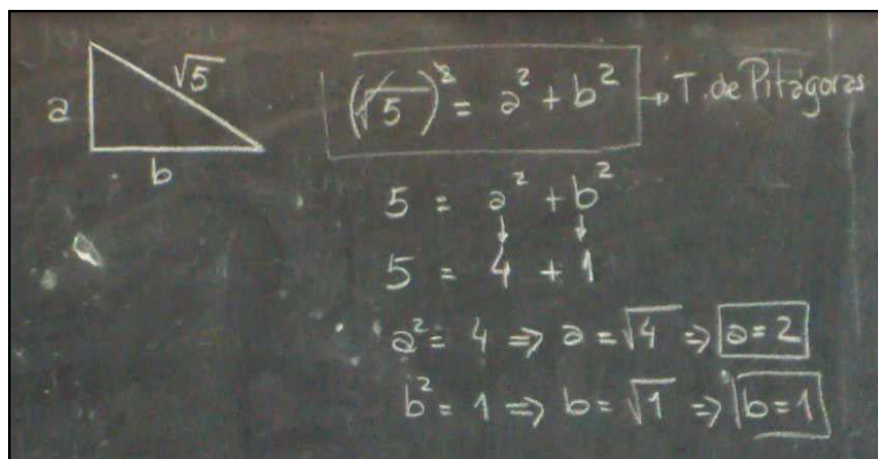 a
√5
b
(√5)² = a² + b² → T. de Pitágoras
5 = a² + b²
↓ ↓
5 = 4 + 1
a² = 4 ⇒ a = √4 ⇒ a = 2
b² = 1 ⇒ b = √1 ⇒ b = 1